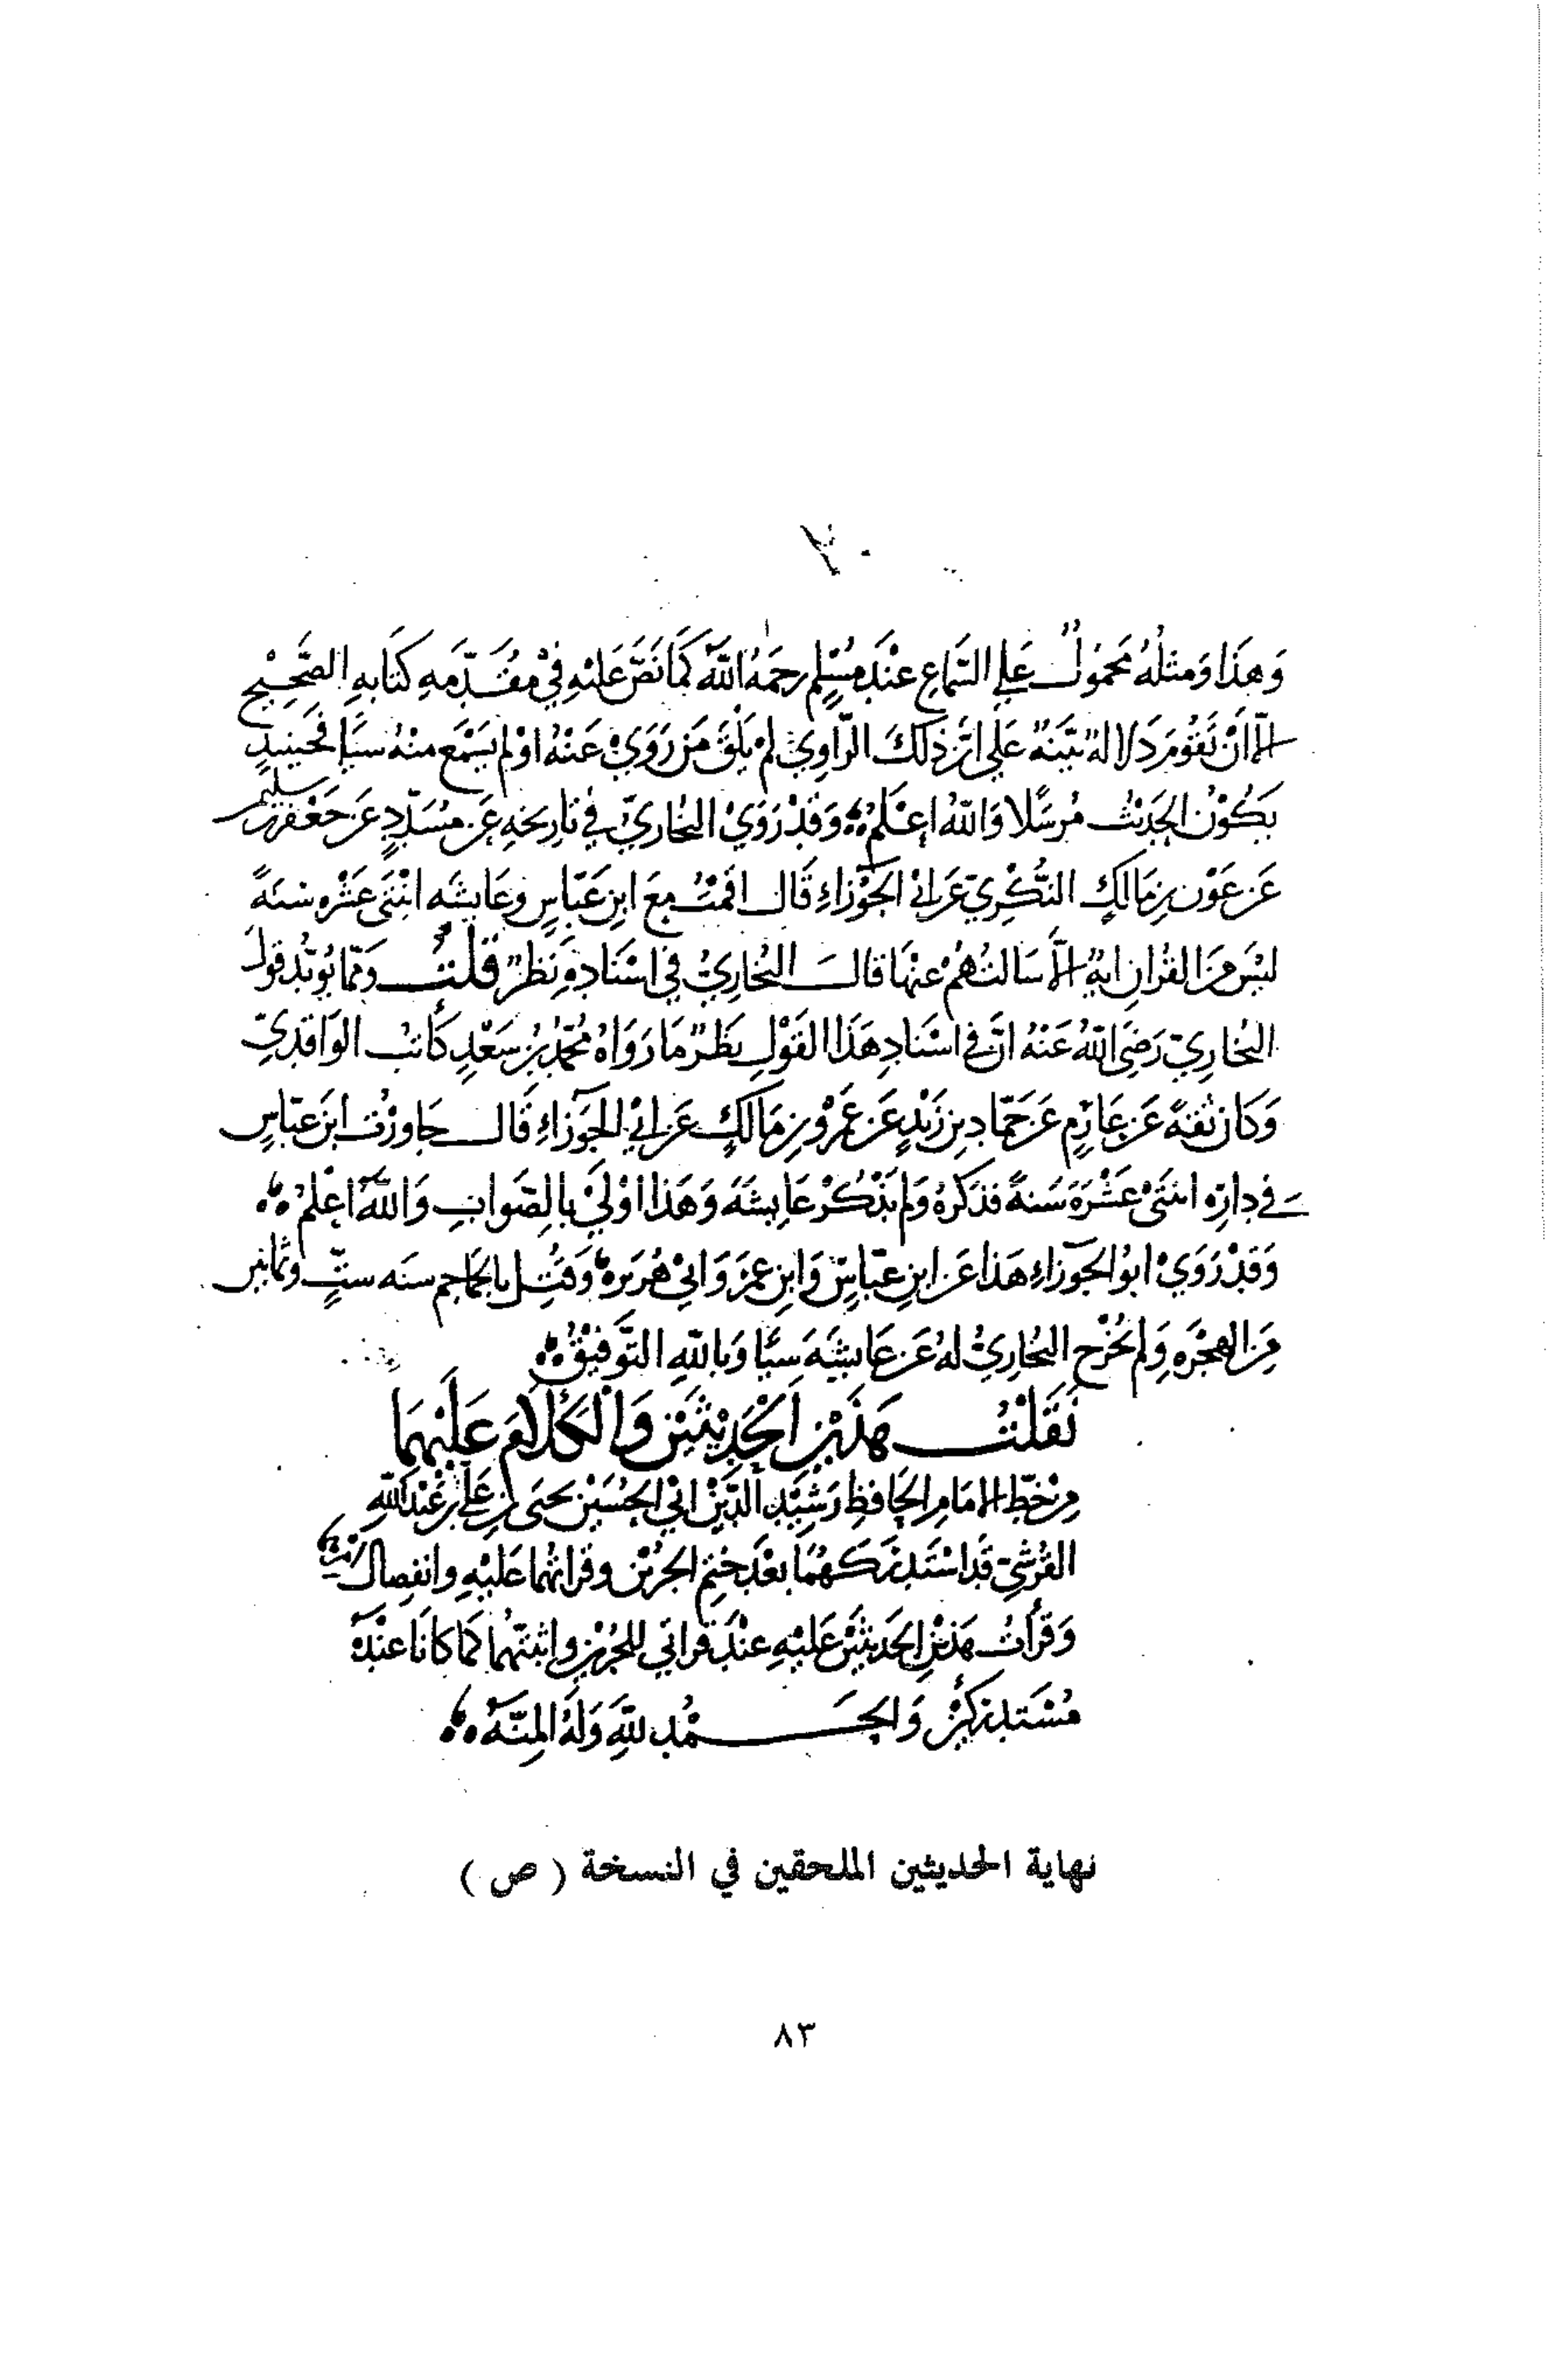 وَهَذَا وَمثلُهُ مَحمُولٌ عَلي السَّماعِ عنْدَ مُسْلِم رحمَهُ اللَّهُ كَمَا نَصَّ عَليْهِ فيْ مقَدّمَهِ كتَابهِ الصَّحِيْح
الاّ أنْ تَقُومَ دَلالهٌ بيّنهٌ عَلي انّ ذلكَ الرّاوِيْ لمْ يَلْقَ مَن رَوَيْ عَنْهُ اوْ لم يَسْمَع منْهُ سيَّا فحَينيدٍ
يَكُوْنُ الحَديْثُ مُرسَلًا وَاللهُ اعْلمُ وَقدْ رَوَيْ البُخاريّ في تاريخهِ عَن مسَدّدٍ عَن جَعْفَر بن سليمن
عَن عَوْن بن مَالكٍ النُّكْرِيّ عَن ابيْ الجَوْزاءِ قَال اقمْتُ معَ ابنِ عَبّاسٍ وعَايشَه اثنْتَي عَشْره سَنهً
ليْسَ مَن القُرانِ ايهٌ الاَّ سَالتُهُمْ عنهَا قالَ البُخارِيُ في اسْنَادهِ نَظرٌ قلْتُ وَممّا يُويّدُ قولَ
البُخارِيّ رَضيَ اللهُ عَنْهُ انَّ في اسْنَادِ هَذا القَوْلِ نظَرٌ مَا رَوَاهُ مُحمّد بنُ سَعْدٍ كَاتبُ الوَاقديّ
وَكَان ثقهً عَن عَارِم عَن حَمّاد بن زَيْدٍ عَن عَمْرو بن مَالكٍ عَن ابيْ الجَوْزاءِ قَال جَاورْتُ ابنَ عبّاسٍ
في دارِه اثنتَيْ عَشْرَهَ سَنهً فذكَرهُ وَلم يَذْكُرْ عَايشَهَ وَهَذا اوْليَ بالصَّوابِ وَاللَّهُ اعْلمُ
وَقدْ رَوَيْ ابوُ الجَوْزاءِ هَذا عَن ابنِ عبّاسٍ وَابنِ عمَرَ وَابيْ هُريَرهَ وَقتُل بالجمَاجم سنَه ستٍّ وثمانين
مَن الهجْرَهِ وَلم يُخرّج البُخاريُ لهُ عَن عَايشَهَ سيًا وَباللهِ التَّوفيْقُ
نَقَلْتُ هَذَيْن الحَدِيْثَيْن وَالكَلَامَ عَلَيْهمَا
من خطّ الامَامِ الحَافظِ رَشيْدِ الدّيْن ابي الحُسَيْن يحيَى بن عَلي بن عَبْد اللهِ
القُرشيّ قَد اسْتَدْرَكَهُمَا بَعْدَ ختْم الجُزئيْن وقرَاتهُما عَليْهِ وانفِصال
وَقَرأتُ هَذيْن الحَديثَيْن عَليْهِ عنْدَ قراتي للجُزيْن واثبَتّهُما كمَا كَانَا عنْدَهُ
مُسْتَدْرَكَيْن وَالحَمْدُ للهِ وَلَهُ المنَّهُ
نهاية الحديثين الملحقين في النسخة ( ص )
٨٣